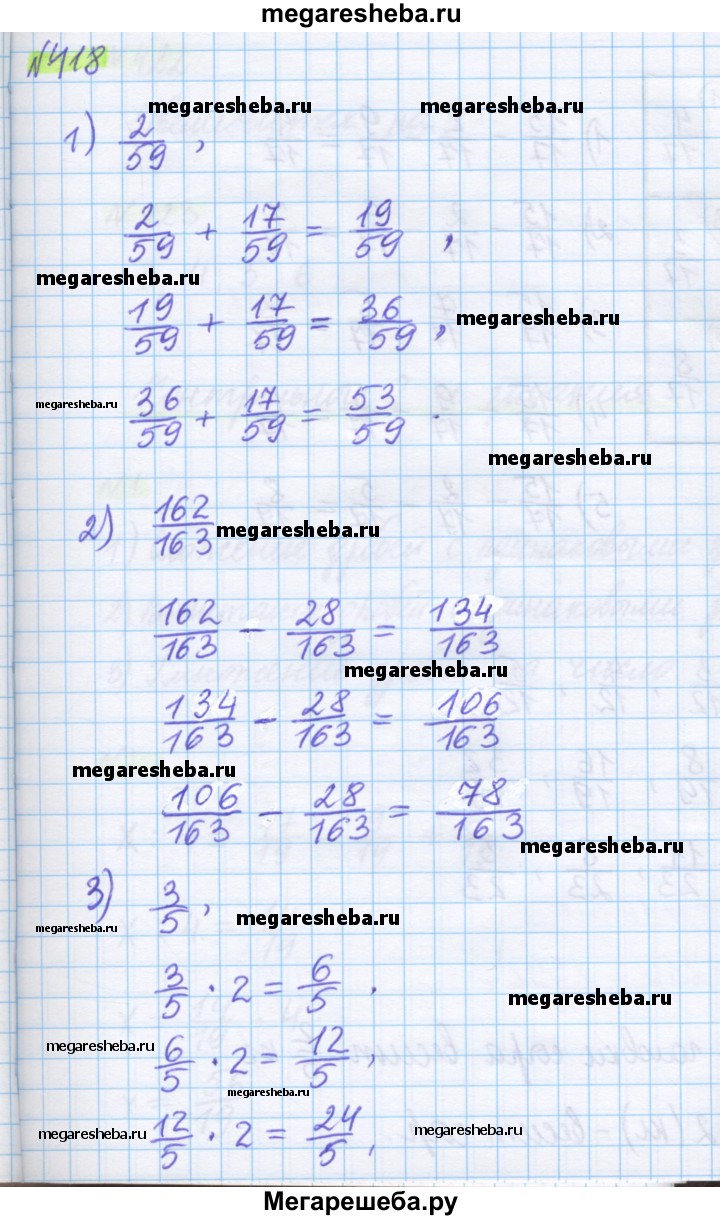 megaresheba.ru
№418
megaresheba.ru
1) 2/59 ,
2/59 + 17/59 = 19/59 ,
megaresheba.ru
19/59 + 17/59 = 36/59 , megaresheba.ru
megaresheba.ru 36/59 + 17/59 = 53/59 .
megaresheba.ru
2) 162/163 megaresheba.ru
162/163 − 28/163 = 134/163
megaresheba.ru
134/163 − 28/163 = 106/163
megaresheba.ru
106/163 − 28/163 = 78/163
megaresheba.ru
3) 3/5 , megaresheba.ru
megaresheba.ru
3/5 · 2 = 6/5 .
megaresheba.ru
megaresheba.ru 6/5 · 2 = 12/5 ,
megaresheba.ru
megaresheba.ru 12/5 · 2 = 24/5 , megaresheba.ru
Мегарешеба.ру